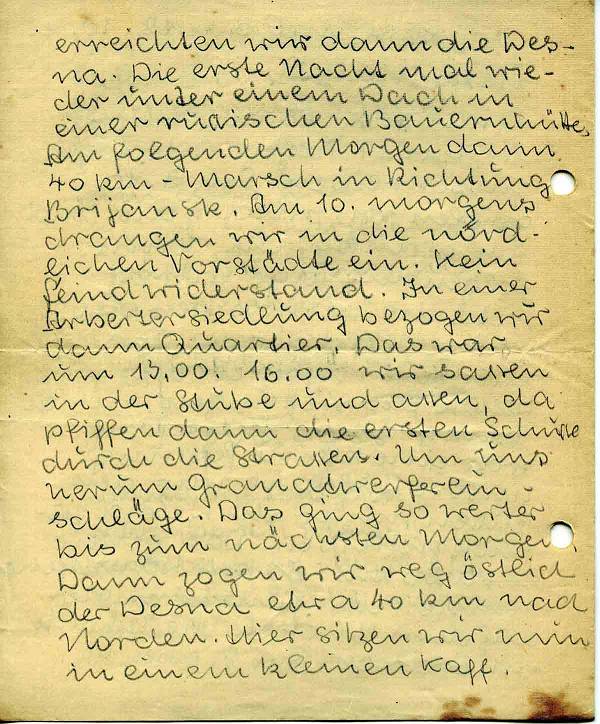 erreichten wir dann die Des-
na. Die erste Nacht mal wie-
der unter einem Dach in
einer russischen Bauernhütte.
Am folgenden Morgen dann
40 km - Marsch in Richtung
Brijansk. Am 10. morgens
drangen wir in die nörd-
lichen Vorstädte ein. Kein
Feindwiderstand. In einer
Arbeitersiedlung bezogen wir
dann Quartier. Das war
um 13,00. 16.00 wir sassen
in der Stube und assen, da
pfiffen dann die ersten Schüsse
durch die Strassen. Um uns
herum Granatwerferein-
schläge. Das ging so weiter
bis zum nächsten Morgen.
Dann zogen wir weg östlich
der Desna etwa 40 km nach
Norden. Hier sitzen wir nun
in einem kleinen Kaff.